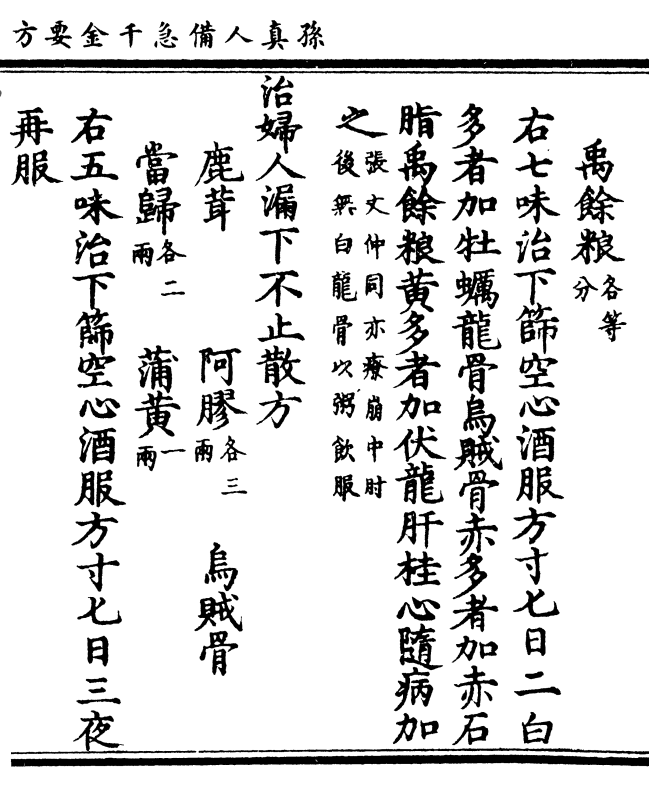 孫真人備急千金要方
禹餘粮各等分
右七味治下篩空心酒服方寸匕日二白
多者加牡蠣龍骨烏賊骨赤多者加赤石
脂禹餘粮黃多者加伏龍肝桂心隨病加
之張文仲同亦療崩中肘後無白龍骨以粥飲服
治婦人漏下不止散方
鹿茸 阿膠各三兩 烏賊骨
當歸各二兩 蒲黃一兩
右五味治下篩空心酒服方寸匕日三夜
再服